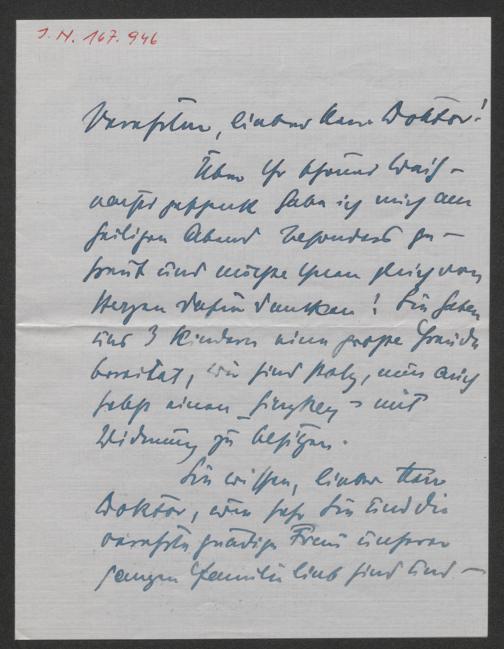 I.N. 167.946
Verehrter, lieber Herr Doktor!
Über Ihr schönes Weih-
nachtsgeschenk habe ich mich am
heiligen Abend besonders ge-
freut und möchte Ihnen gleich von
Herzen dafür danken! Sie haben
uns 3 Kindern eine große Freude
bereitet, wir sind stolz, nun auch
selbst einen „Ginzkey" mit
Widmung zu besitzen.
Sie wissen, lieber Herr
Doktor, wie sehr Sie und die
verehrte gnädige Frau unserer
ganzen Familie lieb sind und –